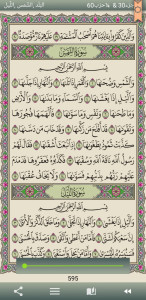 البلد، الشمس، الليل
جزء 30 & حزب 60
وَالَّذِينَ كَفَرُوا بِآيَاتِنَا هُمْ أَصْحَابُ الْمَشْأَمَةِ ۝١٩ عَلَيْهِمْ نَارٌ مُؤْصَدَةٌ ۝٢٠
سُورَةُ الشَّمْسِ
بِسْمِ اللَّهِ الرَّحْمَٰنِ الرَّحِيمِ
وَالشَّمْسِ وَضُحَاهَا ۝١ وَالْقَمَرِ إِذَا تَلَاهَا ۝٢ وَالنَّهَارِ إِذَا جَلَّاهَا ۝٣
وَاللَّيْلِ إِذَا يَغْشَاهَا ۝٤ وَالسَّمَاءِ وَمَا بَنَاهَا ۝٥ وَالْأَرْضِ وَمَا طَحَاهَا
۝٦ وَنَفْسٍ وَمَا سَوَّاهَا ۝٧ فَأَلْهَمَهَا فُجُورَهَا
وَتَقْوَاهَا ۝٨ قَدْ أَفْلَحَ مَنْ زَكَّاهَا ۝٩ وَقَدْ خَابَ مَنْ دَسَّاهَا ۝١٠
كَذَّبَتْ ثَمُودُ بِطَغْوَاهَا ۝١١ إِذِ انْبَعَثَ أَشْقَاهَا ۝١٢ فَقَالَ لَهُمْ
رَسُولُ اللَّهِ نَاقَةَ اللَّهِ وَسُقْيَاهَا ۝١٣ فَكَذَّبُوهُ فَعَقَرُوهَا فَدَمْدَمَ
عَلَيْهِمْ رَبُّهُمْ بِذَنْبِهِمْ فَسَوَّاهَا ۝١٤ وَلَا يَخَافُ عُقْبَاهَا ۝١٥
سُورَةُ اللَّيْلِ
بِسْمِ اللَّهِ الرَّحْمَٰنِ الرَّحِيمِ
وَاللَّيْلِ إِذَا يَغْشَىٰ ۝١ وَالنَّهَارِ إِذَا تَجَلَّىٰ ۝٢ وَمَا خَلَقَ الذَّكَرَ وَالْأُنْثَىٰ
۝٣ إِنَّ سَعْيَكُمْ لَشَتَّىٰ ۝٤ فَأَمَّا مَنْ أَعْطَىٰ وَاتَّقَىٰ ۝٥ وَصَدَّقَ بِالْحُسْنَىٰ
595